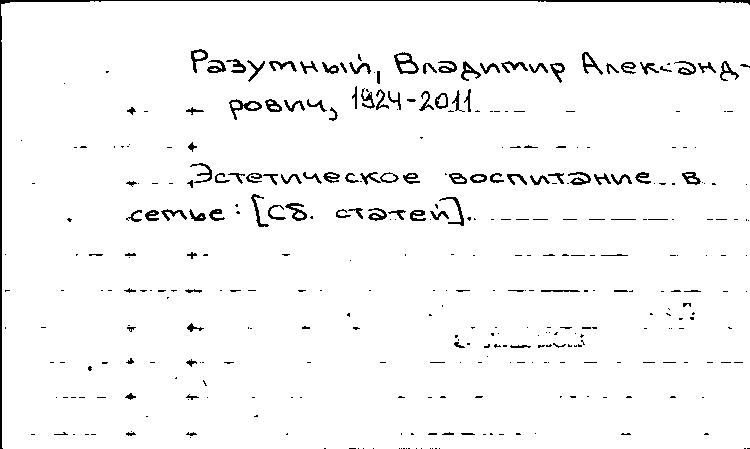 Разумный, Владимир Александ-
рович, 1924-2011
Эстетическое воспитание в
семье: [Сб. статей].